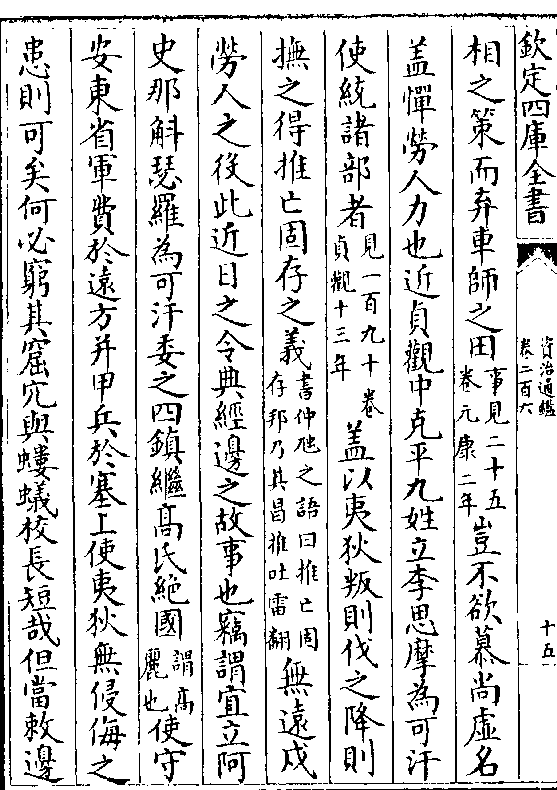 欽定四庫全書
資治通鑑
卷二百六
十五
相之策而弃車師之田事見二十五卷元康二年豈不欲慕尚虚名
盖憚勞人力也近貞觀中克平九姓立李思摩為可汗
使統諸部者見一百九十卷貞觀十三年盖以夷狄叛則伐之降則
撫之得推亡固存之義書仲虺之語曰推亡固存邦乃其昌推吐雷翻無遠戍
勞人之役此近日之令典經邊之故事也竊謂宜立阿
史那斛瑟羅為可汗委之四鎮繼高氏絶國謂高麗也使守
安東省軍費於遠方并甲兵於塞上使夷狄無侵侮之
患則可矣何必窮其窟穴與螻蟻校長短哉但當敕邊